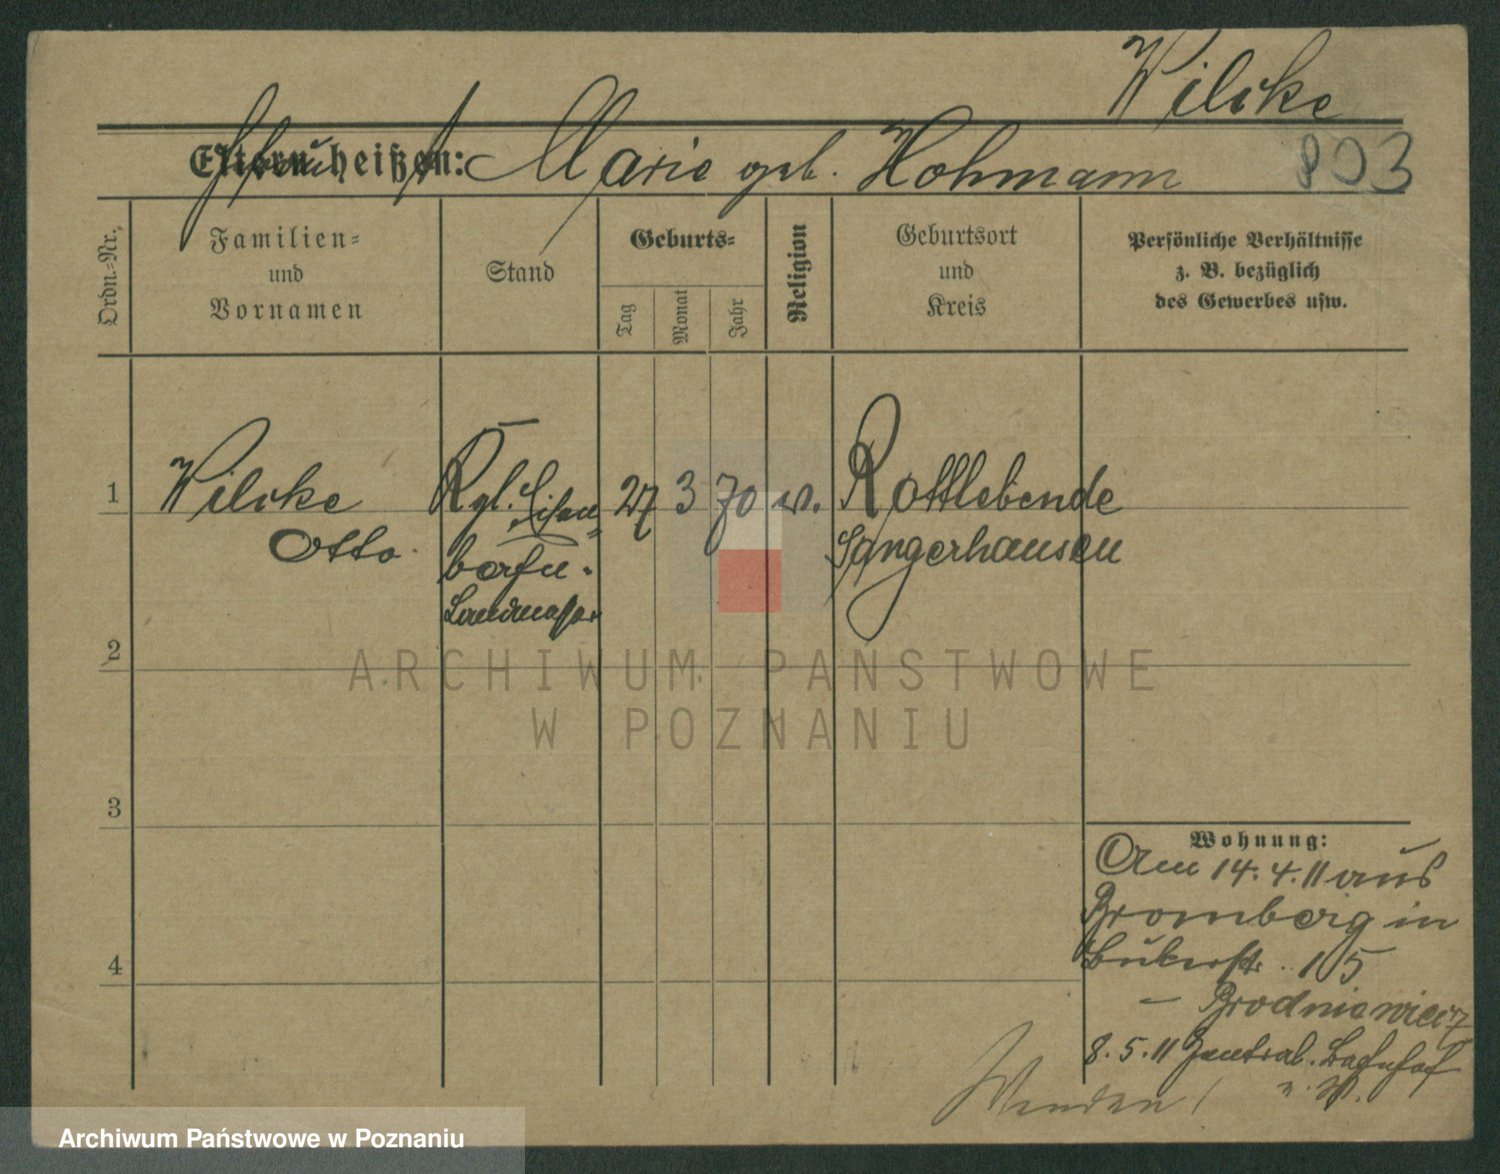 Wilcke
Eltern heißen: Marie geb. Hohmann 803
Ordn.-Nr.
Familien-
und
Vornamen
Stand
Geburts-
Tag
Monat
Jahr
Religion
Geburtsort
und
Kreis
Persönliche Verhältnisse
z. B. bezüglich
des Gewerbes usw.
1 Wilcke Kgl. Eisen 27 3 70 ev. Rottlebende
Otto bahn- Sangerhausen
Landmesser
2
ARCHIWUM PAŃSTWOWE
W POZNANIU
3
4
Wohnung:
Am 14.4.11 aus
Bromberg in
Bukerstr. 15
- Brodniewicz
8.5.11 Zentral-Bahnhof
Wenden!
Archiwum Państwowe w Poznaniu